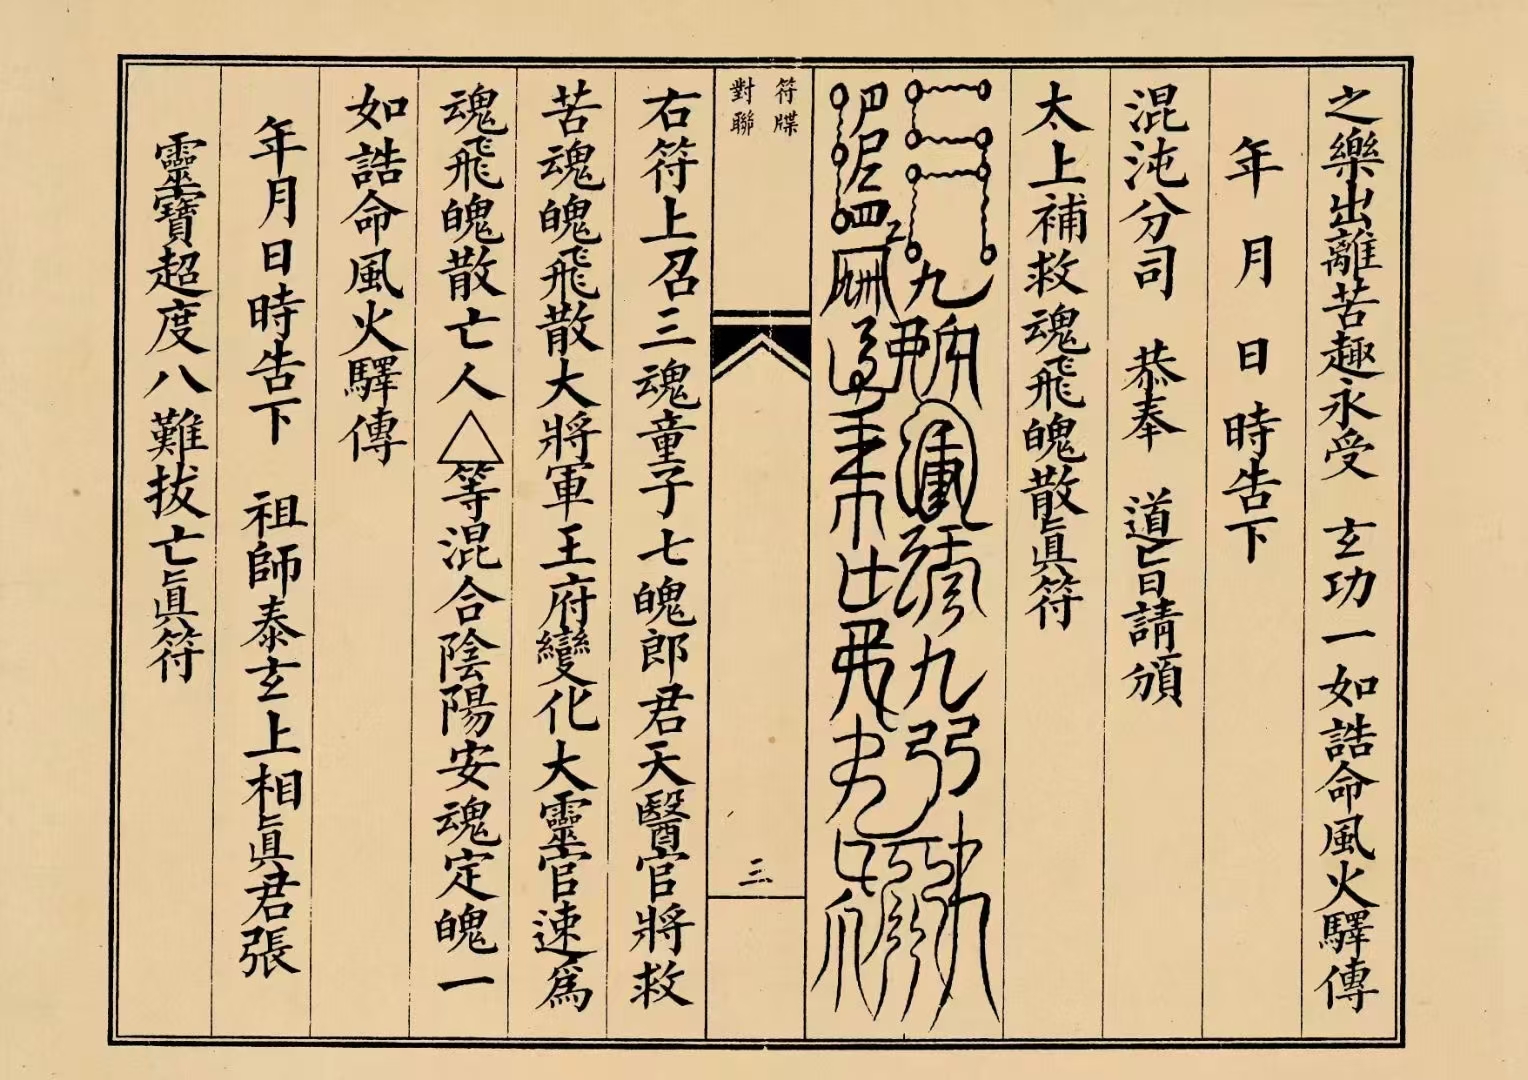 之樂出離苦趣永受　玄功一如誥命風火驛傳
年　月　日　時告下
混沌分司　恭奉　道旨請頒
太上補救魂飛魄散眞符
符牒
對聯
三
右符上召三魂童子七魄郎君天醫官將救
苦魂魄飛散大將軍王府變化大靈官速為
魂飛魄散亡人△等混合陰陽安魂定魄一
如誥命風火驛傳
年月日時告下　祖師泰玄上相眞君張
靈寶超度八難拔亡眞符